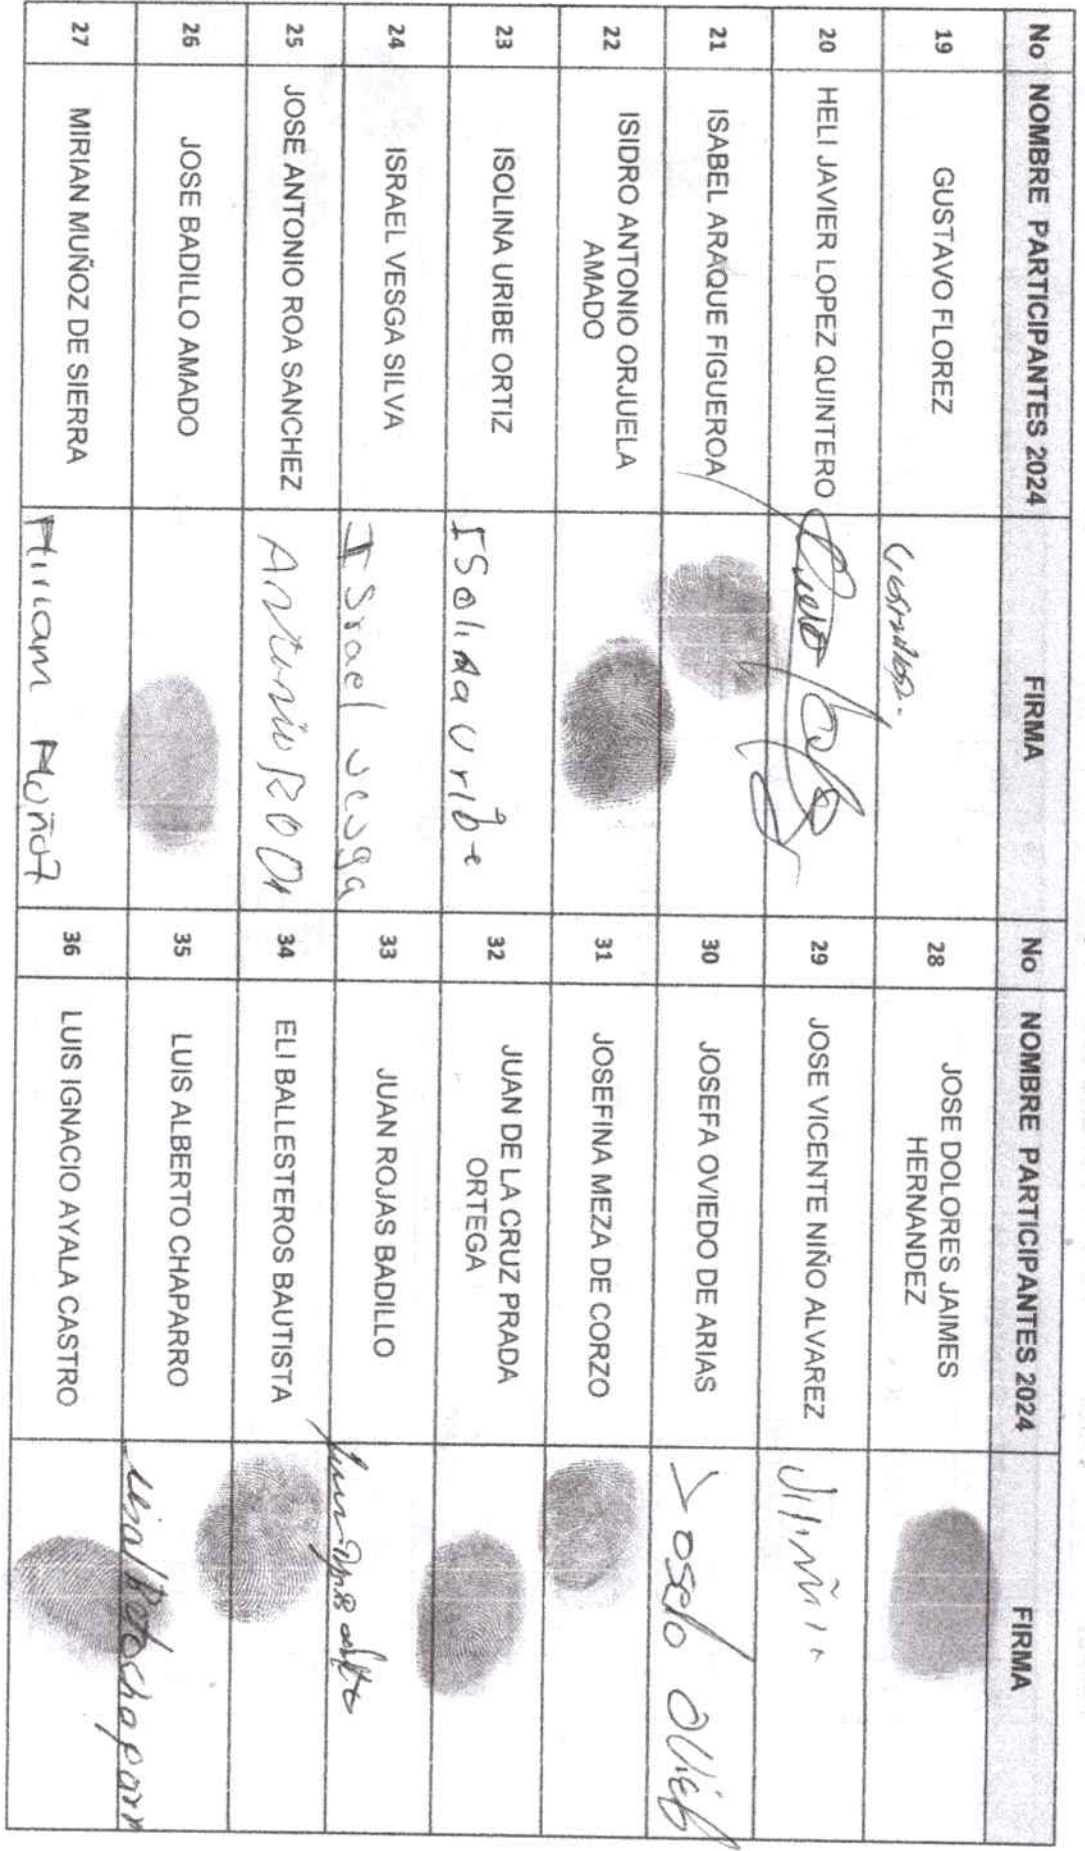 No NOMBRE PARTICIPANTES 2024 FIRMA No NOMBRE PARTICIPANTES 2024 FIRMA
19 GUSTAVO FLOREZ 28 JOSE DOLORES JAIMES HERNANDEZ
20 HELI JAVIER LOPEZ QUINTERO 29 JOSE VICENTE NIÑO ALVAREZ
21 ISABEL ARAQUE FIGUEROA 30 JOSEFA OVIEDO DE ARIAS
22 ISIDRO ANTONIO ORJUELA AMADO 31 JOSEFINA MEZA DE CORZO
23 ISOLINA URIBE ORTIZ ISolina Uribe 32 JUAN DE LA CRUZ PRADA ORTEGA
24 ISRAEL VESGA SILVA ISrael vesga 33 JUAN ROJAS BADILLO
25 JOSE ANTONIO ROA SANCHEZ Antonio ROA 34 ELI BALLESTEROS BAUTISTA
26 JOSE BADILLO AMADO 35 LUIS ALBERTO CHAPARRO
27 MIRIAN MUÑOZ DE SIERRA Miriam Muñoz 36 LUIS IGNACIO AYALA CASTRO